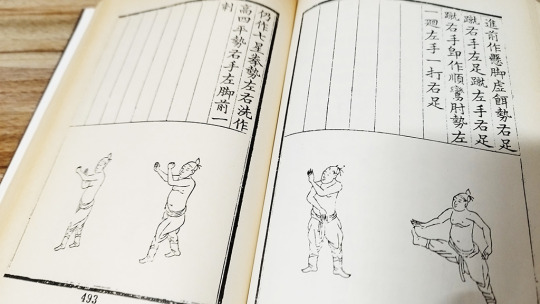 進前作懸脚虛餌勢右足
蹴右手左足蹴左手右足
蹴右手卽作順鸞肘勢左
一廻左手一打右足
仍作七星拳勢左右洗作
高四平勢右手左脚前一
刺
493